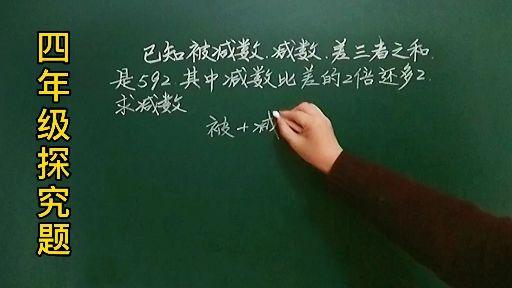 四年级探究题
已知被减数、减数、差三者之和
是592 其中减数比差的2倍还多2.
求减数
被+减